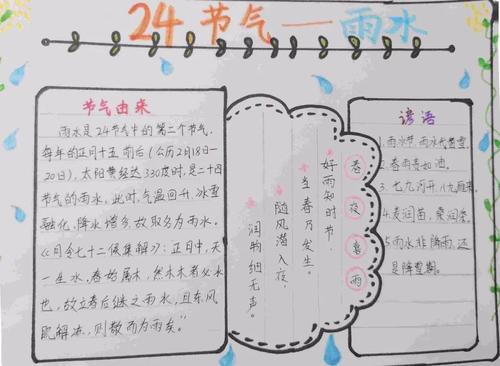 24节气——雨水
节气由来
雨水是24节气中的第二个节气.
每年的正月十五前后（公历2月18日—
20日），太阳黄经达330度时，是二十四
节气的雨水，此时，气温回升、冰雪
融化、降水增多，故取名为雨水。
《月令七十二候集解》：正月中，天
一生水，春始属木，然木者必水
也，故立春后继之雨水，且东风
既解冻，则散而为雨矣"
春夜喜雨
好雨知时节
当春乃发生。
随风潜入夜，
润物细无声。
谚语
1.雨水节，雨水代替雪.
2.春雨贵如油。
3.七九河开，八九雁来.
4.麦润苗，桑润条。
5.雨水非降雨，还
是降雪期。